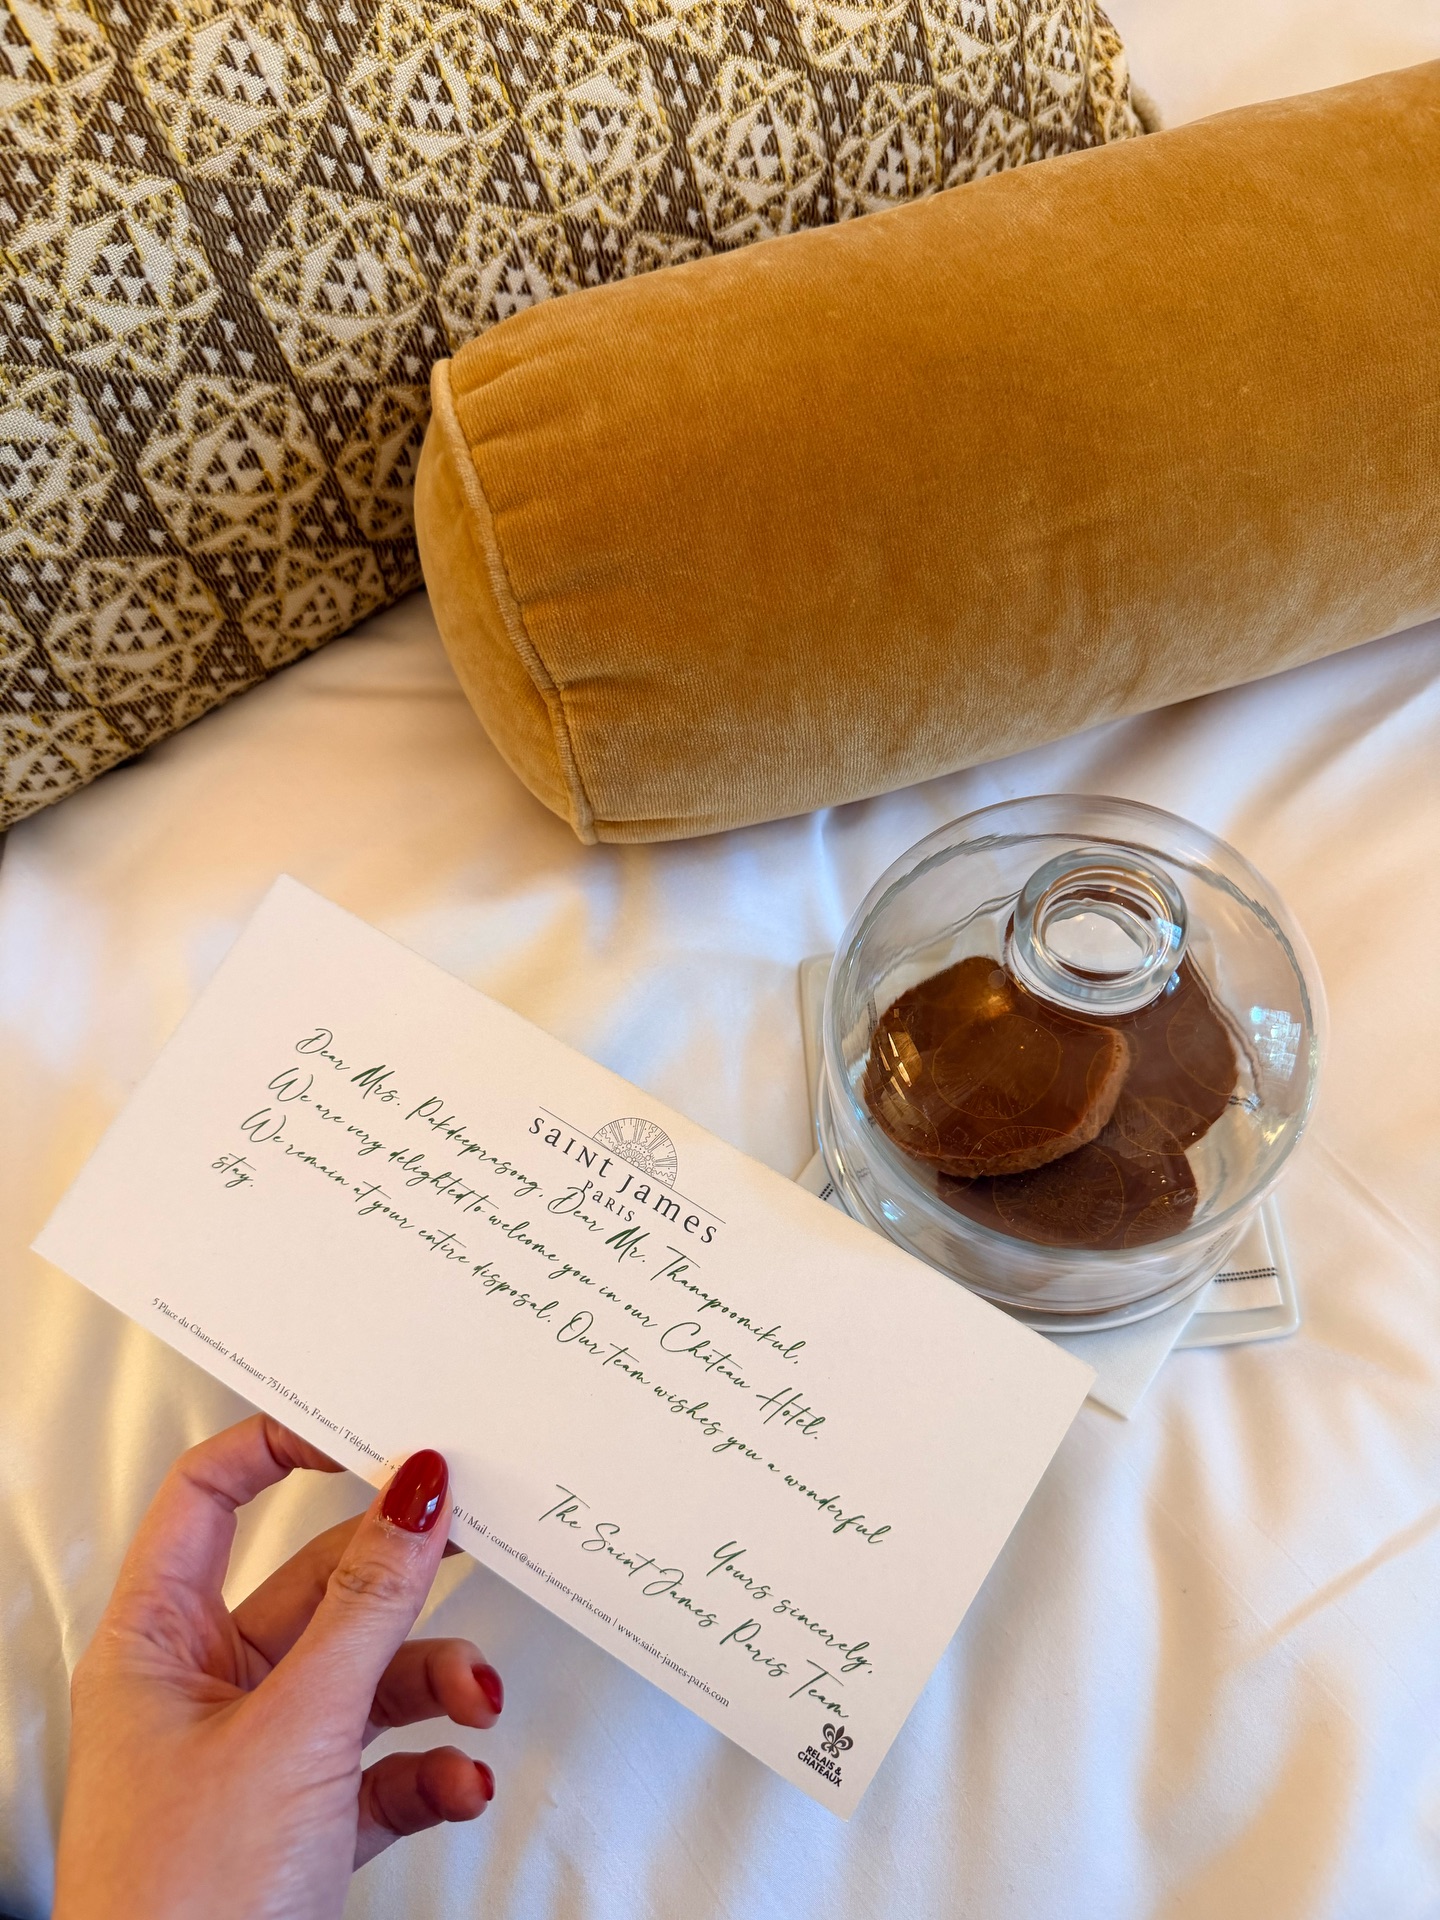 SAINT JAMES
PARIS
Dear Mrs. Pakdeeprasong, Dear Mr. Thanapoomikul,
We are very delighted to welcome you in our Château Hotel.
We remain at your entire disposal. Our team wishes you a wonderful
stay.
Yours sincerely,
The Saint James Paris Team
5 Place du Chancelier Adenauer 75116 Paris, France | Téléphone : + 81 | Mail : contact@saint-james-paris.com | www.saint-james-paris.com
RELAIS &
CHATEAUX